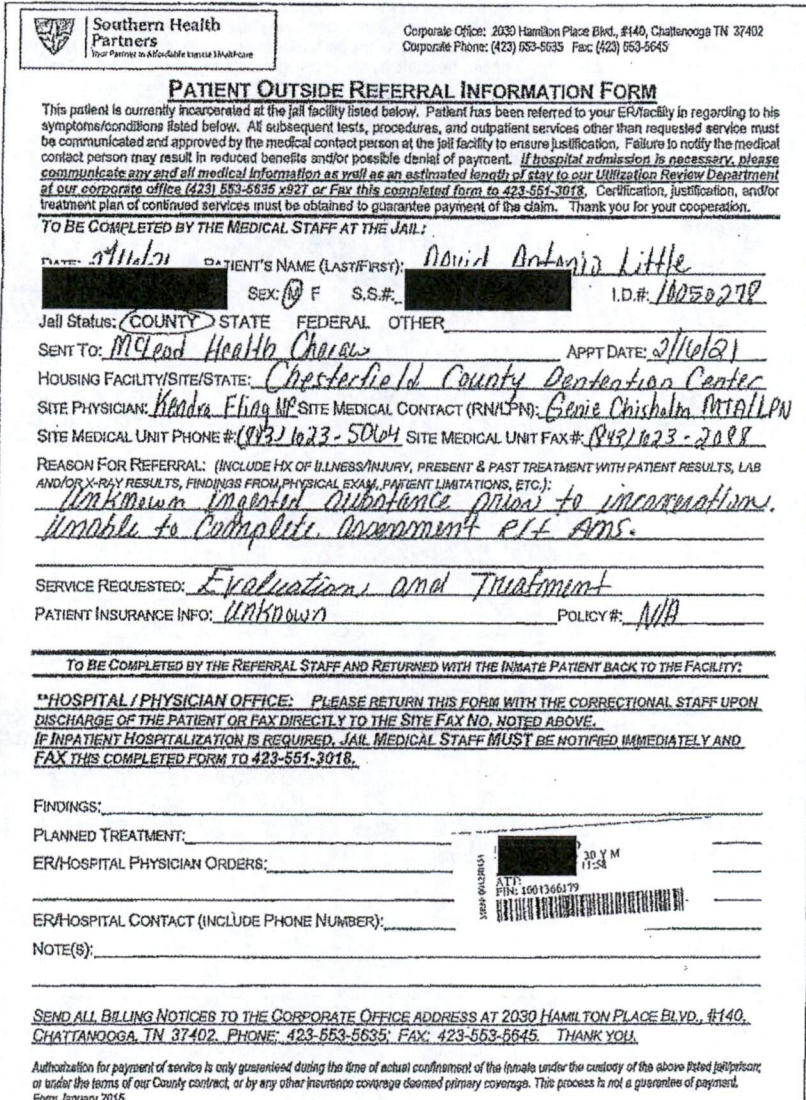 Southern Health
Partners
Your Partner In Affordable Inmate Healthcare
Corporate Office: 2030 Hamilton Place Blvd., #140, Chattanooga TN 37402
Corporate Phone: (423) 553-5635 Fax: (423) 553-5645
PATIENT OUTSIDE REFERRAL INFORMATION FORM
This patient is currently incarcerated at the jail facility listed below. Patient has been referred to your ER/facility in regarding to his
symptoms/conditions listed below. All subsequent tests, procedures, and outpatient services other than requested service must
be communicated and approved by the medical contact person at the jail facility to ensure justification. Failure to notify the medical
contact person may result in reduced benefits and/or possible denial of payment. If hospital admission is necessary, please
communicate any and all medical information as well as an estimated length of stay to our Utilization Review Department
at our corporate office (423) 553-5635 x927 or Fax this completed form to 423-551-3018. Certification, justification, and/or
treatment plan of continued services must be obtained to guarantee payment of the claim. Thank you for your cooperation.
TO BE COMPLETED BY THE MEDICAL STAFF AT THE JAIL:
DATE: 2/16/21 PATIENT'S NAME (LAST/FIRST): David Antonio Little
SEX: M F S.S.#: I.D.#: 10050278
Jail Status: COUNTY STATE FEDERAL OTHER
SENT TO: McLeod Health Cheraw APPT DATE: 2/16/21
HOUSING FACILITY/SITE/STATE: Chesterfield County Dentention Center
SITE PHYSICIAN: Kendra Fling NP SITE MEDICAL CONTACT (RN/LPN): Genie Chisholm MTA/LPN
SITE MEDICAL UNIT PHONE #: (843) 623-5064 SITE MEDICAL UNIT FAX#: (843) 623-2098
REASON FOR REFERRAL: (INCLUDE HX OF ILLNESS/INJURY, PRESENT & PAST TREATMENT WITH PATIENT RESULTS, LAB
AND/OR X-RAY RESULTS, FINDINGS FROM PHYSICAL EXAM, PATIENT LIMITATIONS, ETC.):
Unknown ingested substance prior to incarceration.
Unable to Complete assessment R/t AMS.
SERVICE REQUESTED: Evaluation and Treatment
PATIENT INSURANCE INFO: Unknown POLICY#: N/A
TO BE COMPLETED BY THE REFERRAL STAFF AND RETURNED WITH THE INMATE PATIENT BACK TO THE FACILITY:
**HOSPITAL / PHYSICIAN OFFICE: PLEASE RETURN THIS FORM WITH THE CORRECTIONAL STAFF UPON
DISCHARGE OF THE PATIENT OR FAX DIRECTLY TO THE SITE FAX NO. NOTED ABOVE.
IF INPATIENT HOSPITALIZATION IS REQUIRED, JAIL MEDICAL STAFF MUST BE NOTIFIED IMMEDIATELY AND
FAX THIS COMPLETED FORM TO 423-551-3018.
FINDINGS:
PLANNED TREATMENT:
ER/HOSPITAL PHYSICIAN ORDERS:
30 Y M
11:58
ATT:
FIN: 1001366179
ER/HOSPITAL CONTACT (INCLUDE PHONE NUMBER):
NOTE(S):
SEND ALL BILLING NOTICES TO THE CORPORATE OFFICE ADDRESS AT 2030 HAMILTON PLACE BLVD., #140,
CHATTANOOGA, TN 37402. PHONE: 423-553-5635; FAX: 423-553-5645. THANK YOU.
Authorization for payment of service is only guaranteed during the time of actual confinement of the inmate under the custody of the above listed jail/prison;
or under the terms of our County contract, or by any other insurance coverage deemed primary coverage. This process is not a guarantee of payment.
Form January 2015